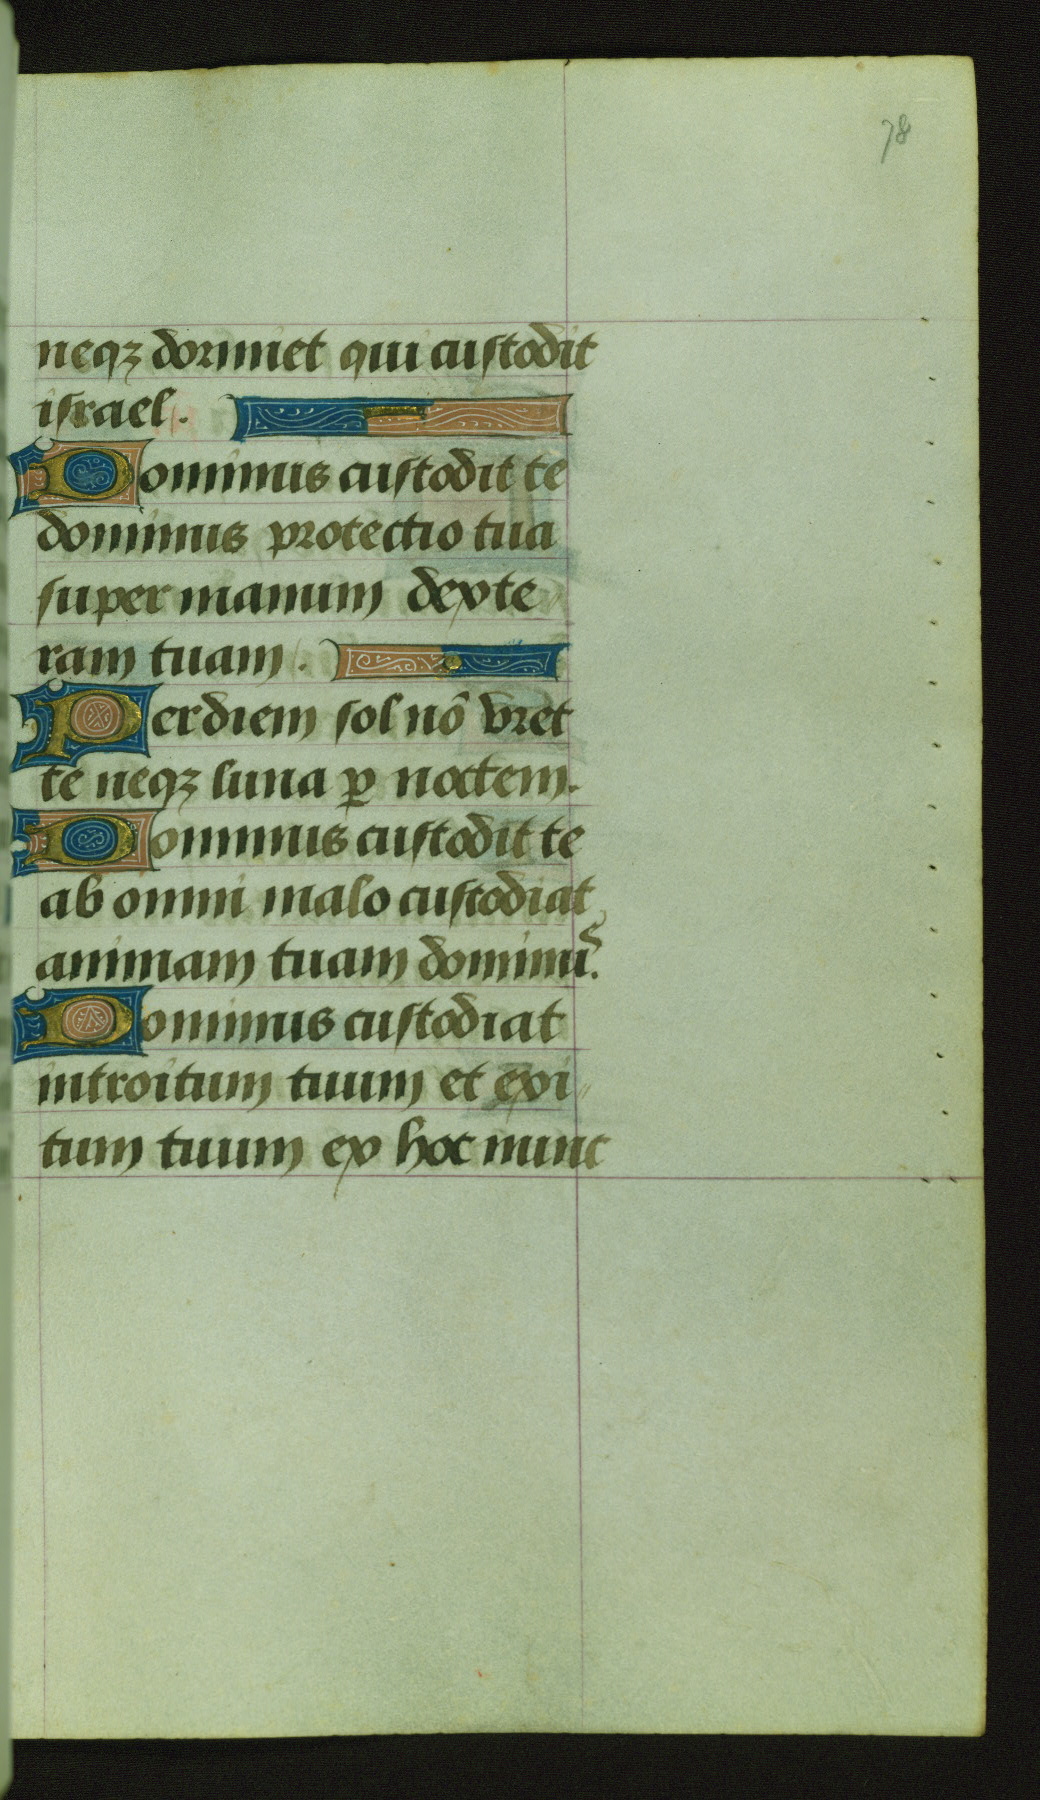 78
neqꝫ dormiet qui custodit
israel.
Dominus custodit te
dominus protectio tua
super manum dexte
ram tuam.
Per diem sol nō vret
te neqꝫ luna ꝑ noctem.
Dominus custodit te
ab omni malo custodiat
animam tuam dominuˢ.
Dominus custodiat
introitum tuum et exi
tum tuum ex hoc nunc